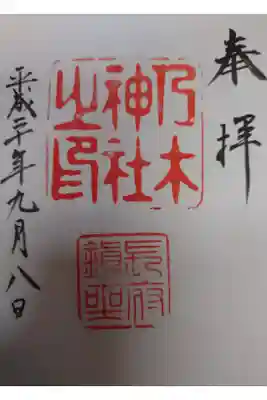 奉拝
乃木
神社
之印
長府
平成三十年九月八日